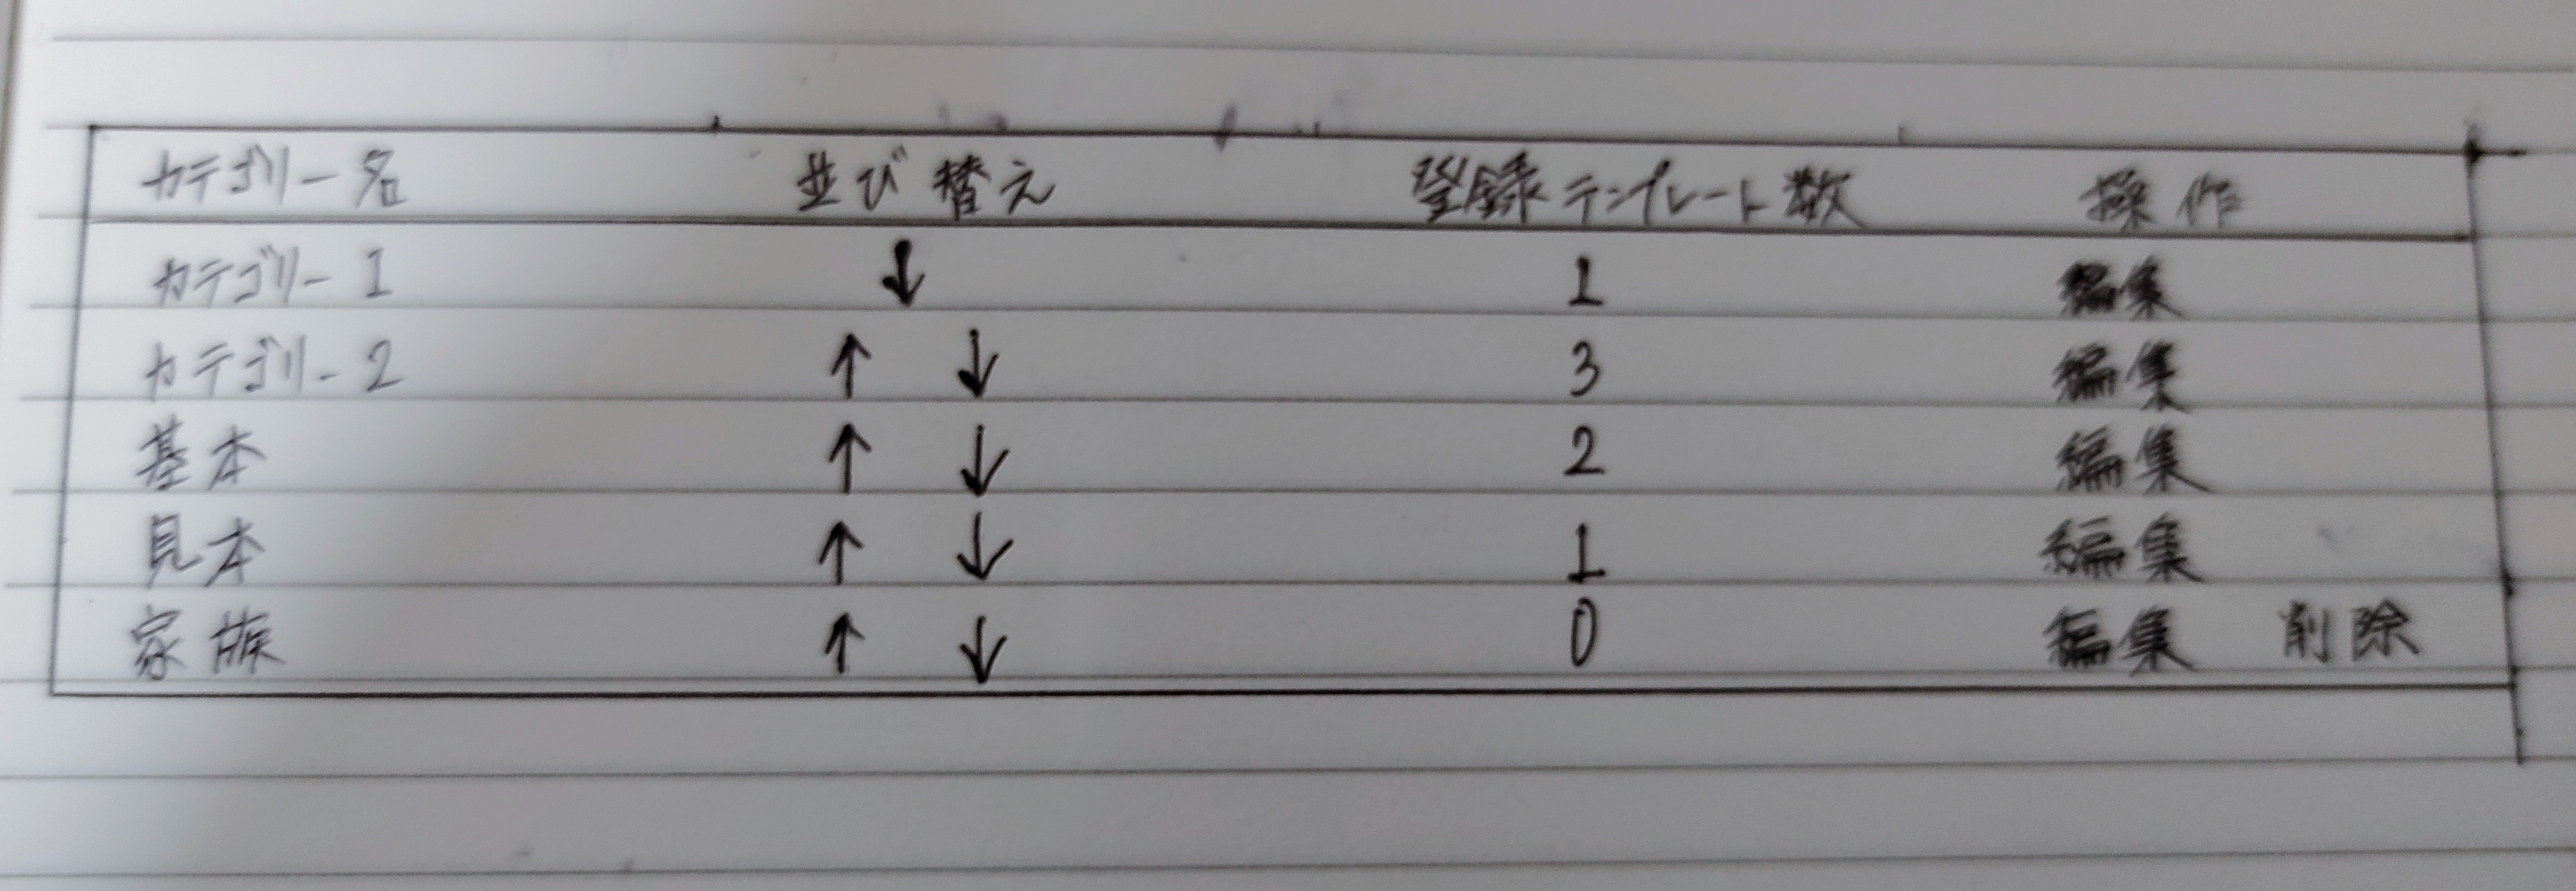 カテゴリー名 並び替え 登録テンプレート数 操作
カテゴリー1 ↓ 1 編集
カテゴリー2 ↑ ↓ 3 編集
基本 ↑ ↓ 2 編集
見本 ↑ ↓ 1 編集
家族 ↑ ↓ 0 編集 削除